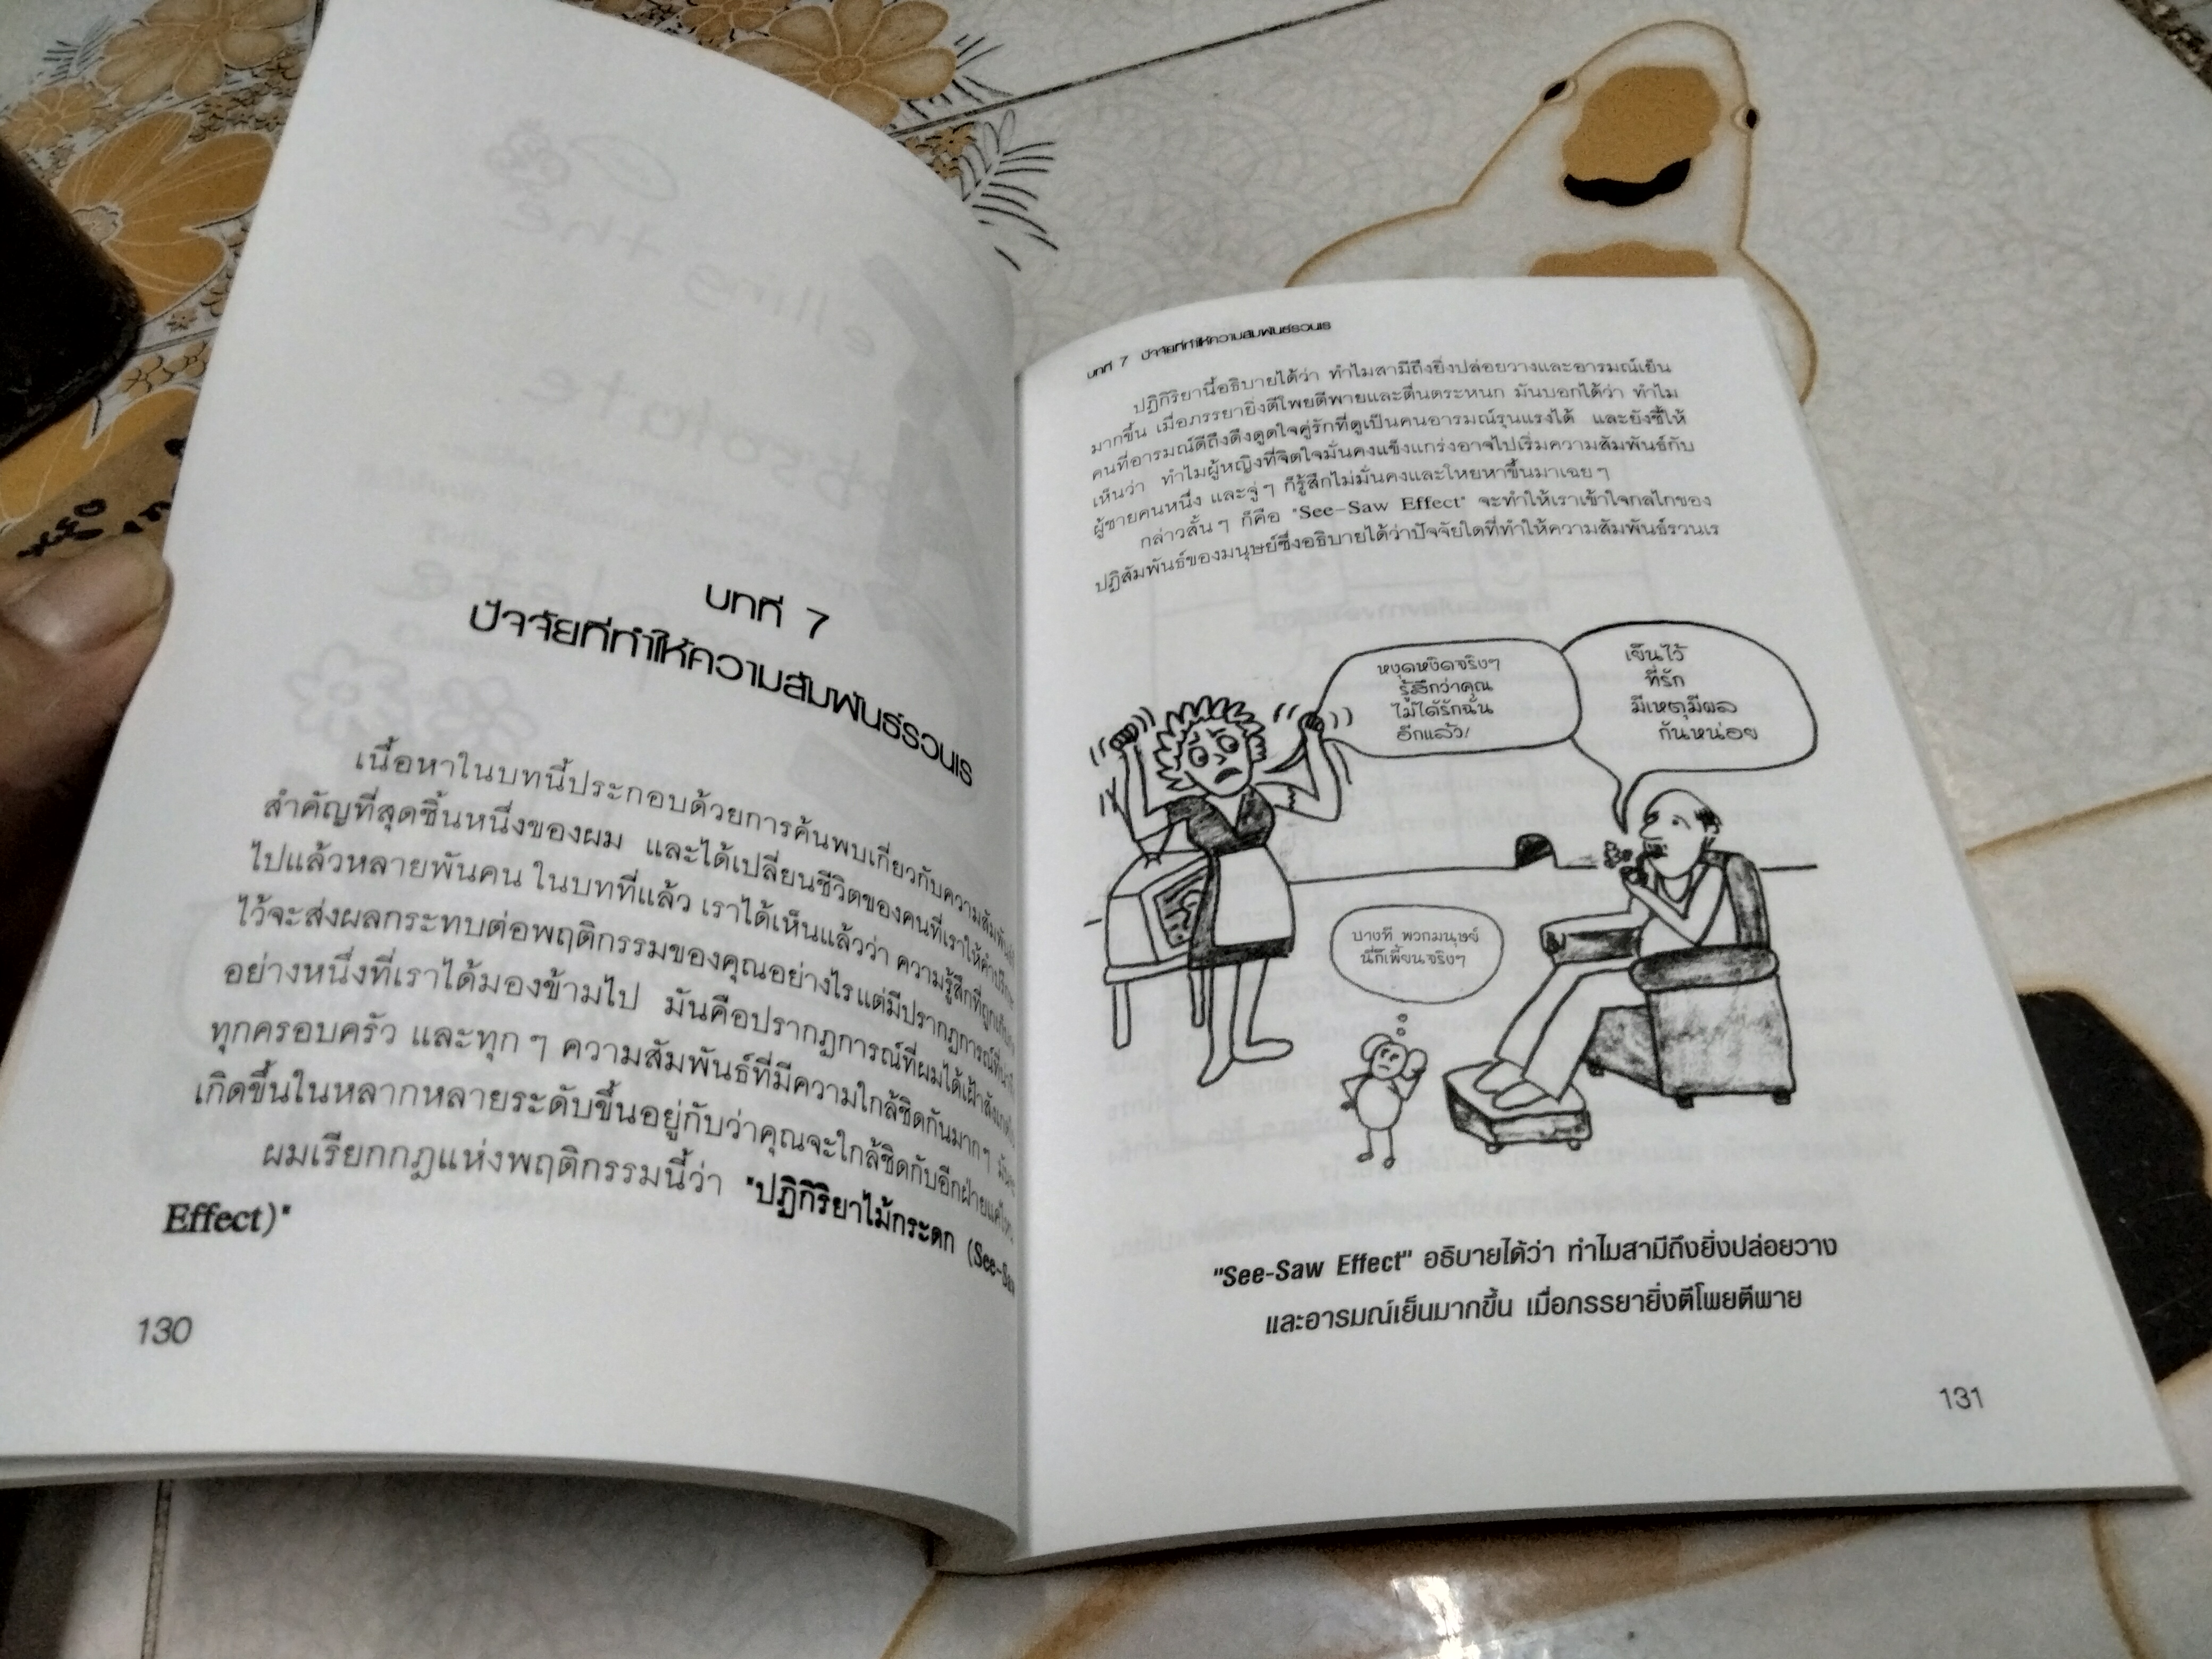 บทที่ 7
ปัจจัยที่ทำให้ความสัมพันธ์รวนเร
เนื้อหาในบทนี้ประกอบด้วยการค้นพบเกี่ยวกับความสัมพันธ์ที่
สำคัญที่สุดชิ้นหนึ่งของผม และได้เปลี่ยนชีวิตของคนที่เราให้คำปรึกษา
ไปแล้วหลายพันคน ในบทที่แล้ว เราได้เห็นแล้วว่า ความรู้สึกที่ถูกเก็บกด
ไว้จะส่งผลกระทบต่อพฤติกรรมของคุณอย่างไรแต่มีปรากฏการณ์ที่
อย่างหนึ่งที่เราได้มองข้ามไป มันคือปรากฏการณ์ที่ผมได้เฝ้าสังเกต
ทุกครอบครัว และทุกๆ ความสัมพันธ์ที่มีความใกล้ชิดกันมากๆ
เกิดขึ้นในหลากหลายระดับขึ้นอยู่กับว่าคุณจะใกล้ชิดกับอีกฝ่ายแค่ไหน
ผมเรียกกฎแห่งพฤติกรรมนี้ว่า "ปฏิกิริยาไม้กระดก (See-Saw
Effect)"
130
บทที่ 7 ปัจจัยที่ทำให้ความสัมพันธ์รวนเร
ปฏิกิริยานี้อธิบายได้ว่า ทำไมสามีถึงยิ่งปล่อยวางและอารมณ์เย็น
มากขึ้น เมื่อภรรยายิ่งตีโพยตีพายและตื่นตระหนก มันบอกได้ว่า ทำไม
คนที่อารมณ์ดีถึงดึงดูดใจคู่รักที่ดูเป็นคนอารมณ์รุนแรงได้ และยังชี้ให้
เห็นว่า ทำไมผู้หญิงที่จิตใจมั่นคงแข็งแกร่งอาจไปเริ่มความสัมพันธ์กับ
ผู้ชายคนหนึ่ง และจู่ๆ ก็รู้สึกไม่มั่นคงและโหยหาขึ้นมาเฉยๆ
กล่าวสั้นๆ ก็คือ "See-Saw Effect" จะทำให้เราเข้าใจกลไกของ
ปฏิสัมพันธ์ของมนุษย์ซึ่งอธิบายได้ว่าปัจจัยใดที่ทำให้ความสัมพันธ์รวนเร
หงุดหงิดจริงๆ
รู้สึกว่าคุณ
ไม่ได้รักฉัน
อีกแล้ว!
เย็นไว้
ที่รัก
มีเหตุมีผล
กันหน่อย
บางที พวกมนุษย์
นี่ก็เพี้ยนจริงๆ
"See-Saw Effect" อธิบายได้ว่า ทำไมสามีถึงยิ่งปล่อยวาง
และอารมณ์เย็นมากขึ้น เมื่อภรรยายิ่งตีโพยตีพาย
131